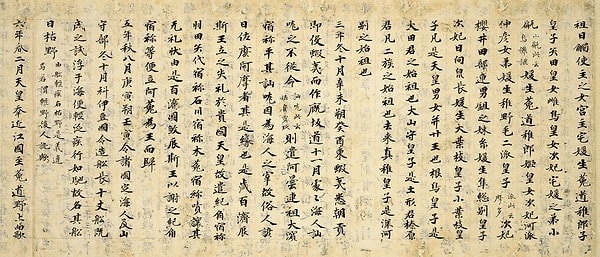 祖日觸使主之女宮主宅媛生菟道稚郎子
皇子矢田皇女雌鳥皇女次妃宅媛之弟小
甂媛生菟道稚郎姬皇女次妃河派
仲彥女弟媛生稚野毛二派皇子次妃
櫻井田部連男鉏之妹糸媛生隼總別皇子
次妃日向泉長媛生大葉枝皇子小葉枝皇
子凡是天皇男女幷廿王也根鳥皇子是
大田君之始祖也大山守皇子是土形君榛原
君凡二族之始祖也去來真稚皇子是深河
別之始祖也
三年冬十月辛未朔癸酉東蝦夷悉朝貢
即役蝦夷而作厩坂道十一月處々海人訕
哤之不從命則遣阿曇連祖大濱
宿祢平其訕哤因為海人之宰故俗人諺
曰佐麼阿摩者其是緣也是歲百濟辰
斯王立之失礼於貴國天皇故遣紀角宿祢
羽田矢代宿祢石川宿祢木菟宿祢嘖讓其
无礼狀由是百濟國殺辰斯王以謝之紀角
宿祢等便立阿花為王而歸
五年秋八月庚寅朔壬寅令諸國定海人及山
守部冬十月科伊豆國令造船長十丈船既
成之試浮于海便輕泛疾行如馳故名其船
曰枯野
六年春二月天皇幸近江國至菟道野上而歌